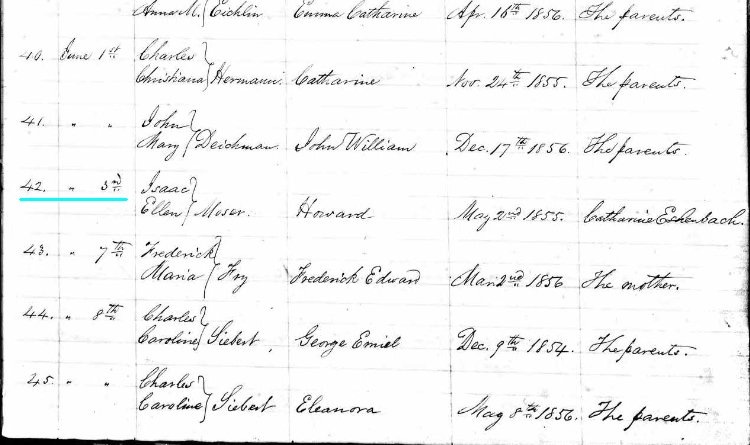 Anna M. Eichlin Emma Catharine Apr. 16th 1856. The parents.
40. June 1st Charles
Christiana Hermann. Catharine Nov. 24th 1855. The parents.
41. " " John
Mary Deichman. John William Dec. 17th 1856. The parents.
42. " 3rd Isaac
Ellen Moser. Howard May 2nd 1855. Catharine Eshenbach.
43. " 7th Frederick
Maria Fry Frederick Edward Mar. 2nd 1856 The mother.
44. " 8th Charles
Caroline Siebert, George Emiel Dec. 9th 1854. The parents.
45. " " Charles
Caroline Siebert Eleanora May 8th 1856. The parents.